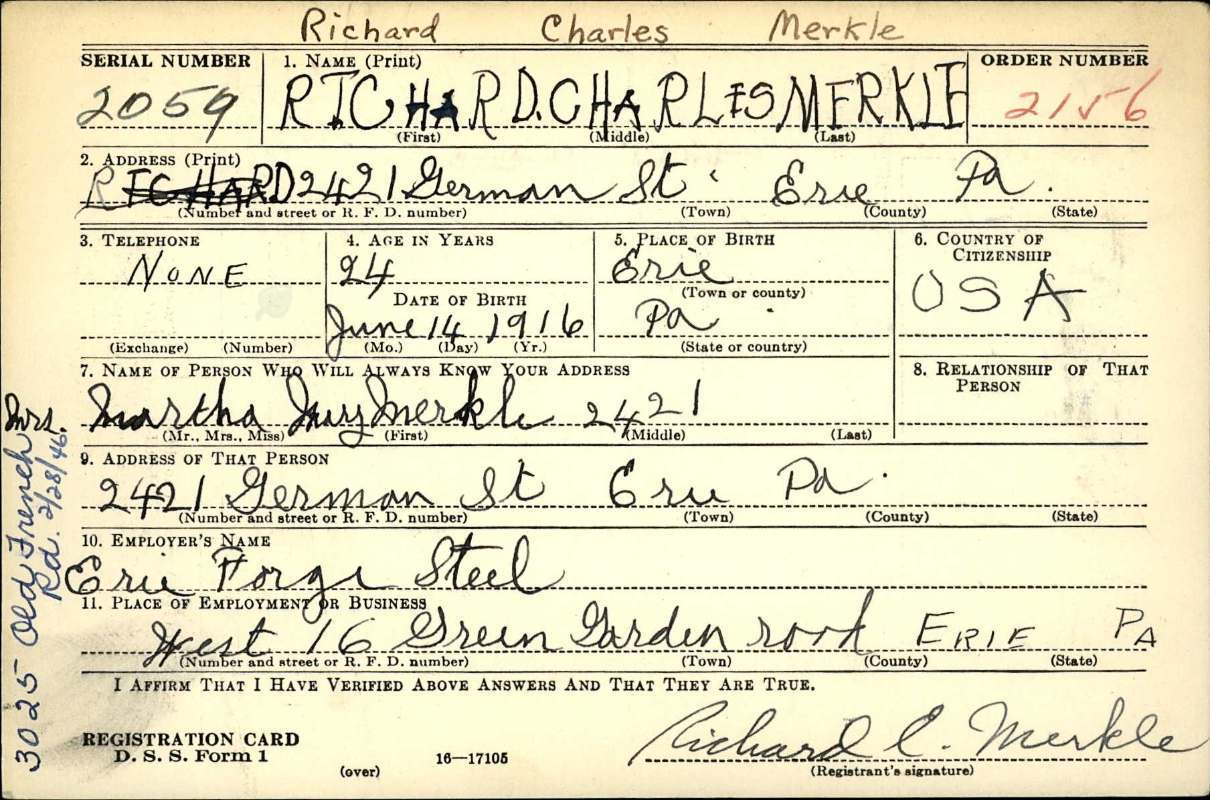 Richard Charles Merkle
SERIAL NUMBER 1. NAME (Print) ORDER NUMBER
2059 RICHARD. CHARLES MERKLE 2156
(First) (Middle) (Last)
2. ADDRESS (Print)
RICHARD 2421 German St. Erie Pa.
(Number and street or R. F. D. number) (Town) (County) (State)
3. TELEPHONE 4. AGE IN YEARS 5. PLACE OF BIRTH 6. COUNTRY OF CITIZENSHIP
NONE 24 Erie USA
DATE OF BIRTH (Town or county)
June 14 1916 Pa
(Exchange) (Number) (Mo.) (Day) (Yr.) (State or country)
7. NAME OF PERSON WHO WILL ALWAYS KNOW YOUR ADDRESS 8. RELATIONSHIP OF THAT PERSON
Mrs. Martha May Merkle 2421
(Mr., Mrs., Miss) (First) (Middle) (Last)
9. ADDRESS OF THAT PERSON
2421 German St Erie Pa.
(Number and street or R. F. D. number) (Town) (County) (State)
10. EMPLOYER'S NAME
Erie Forge Steel
11. PLACE OF EMPLOYMENT OR BUSINESS
West 16 Green Garden road ERIE PA
(Number and street or R. F. D. number) (Town) (County) (State)
I AFFIRM THAT I HAVE VERIFIED ABOVE ANSWERS AND THAT THEY ARE TRUE.
REGISTRATION CARD
D. S. S. Form 1 16—17105
(over)
Richard C. Merkle
(Registrant's signature)
3025 Old French
Rd. 2/28/46